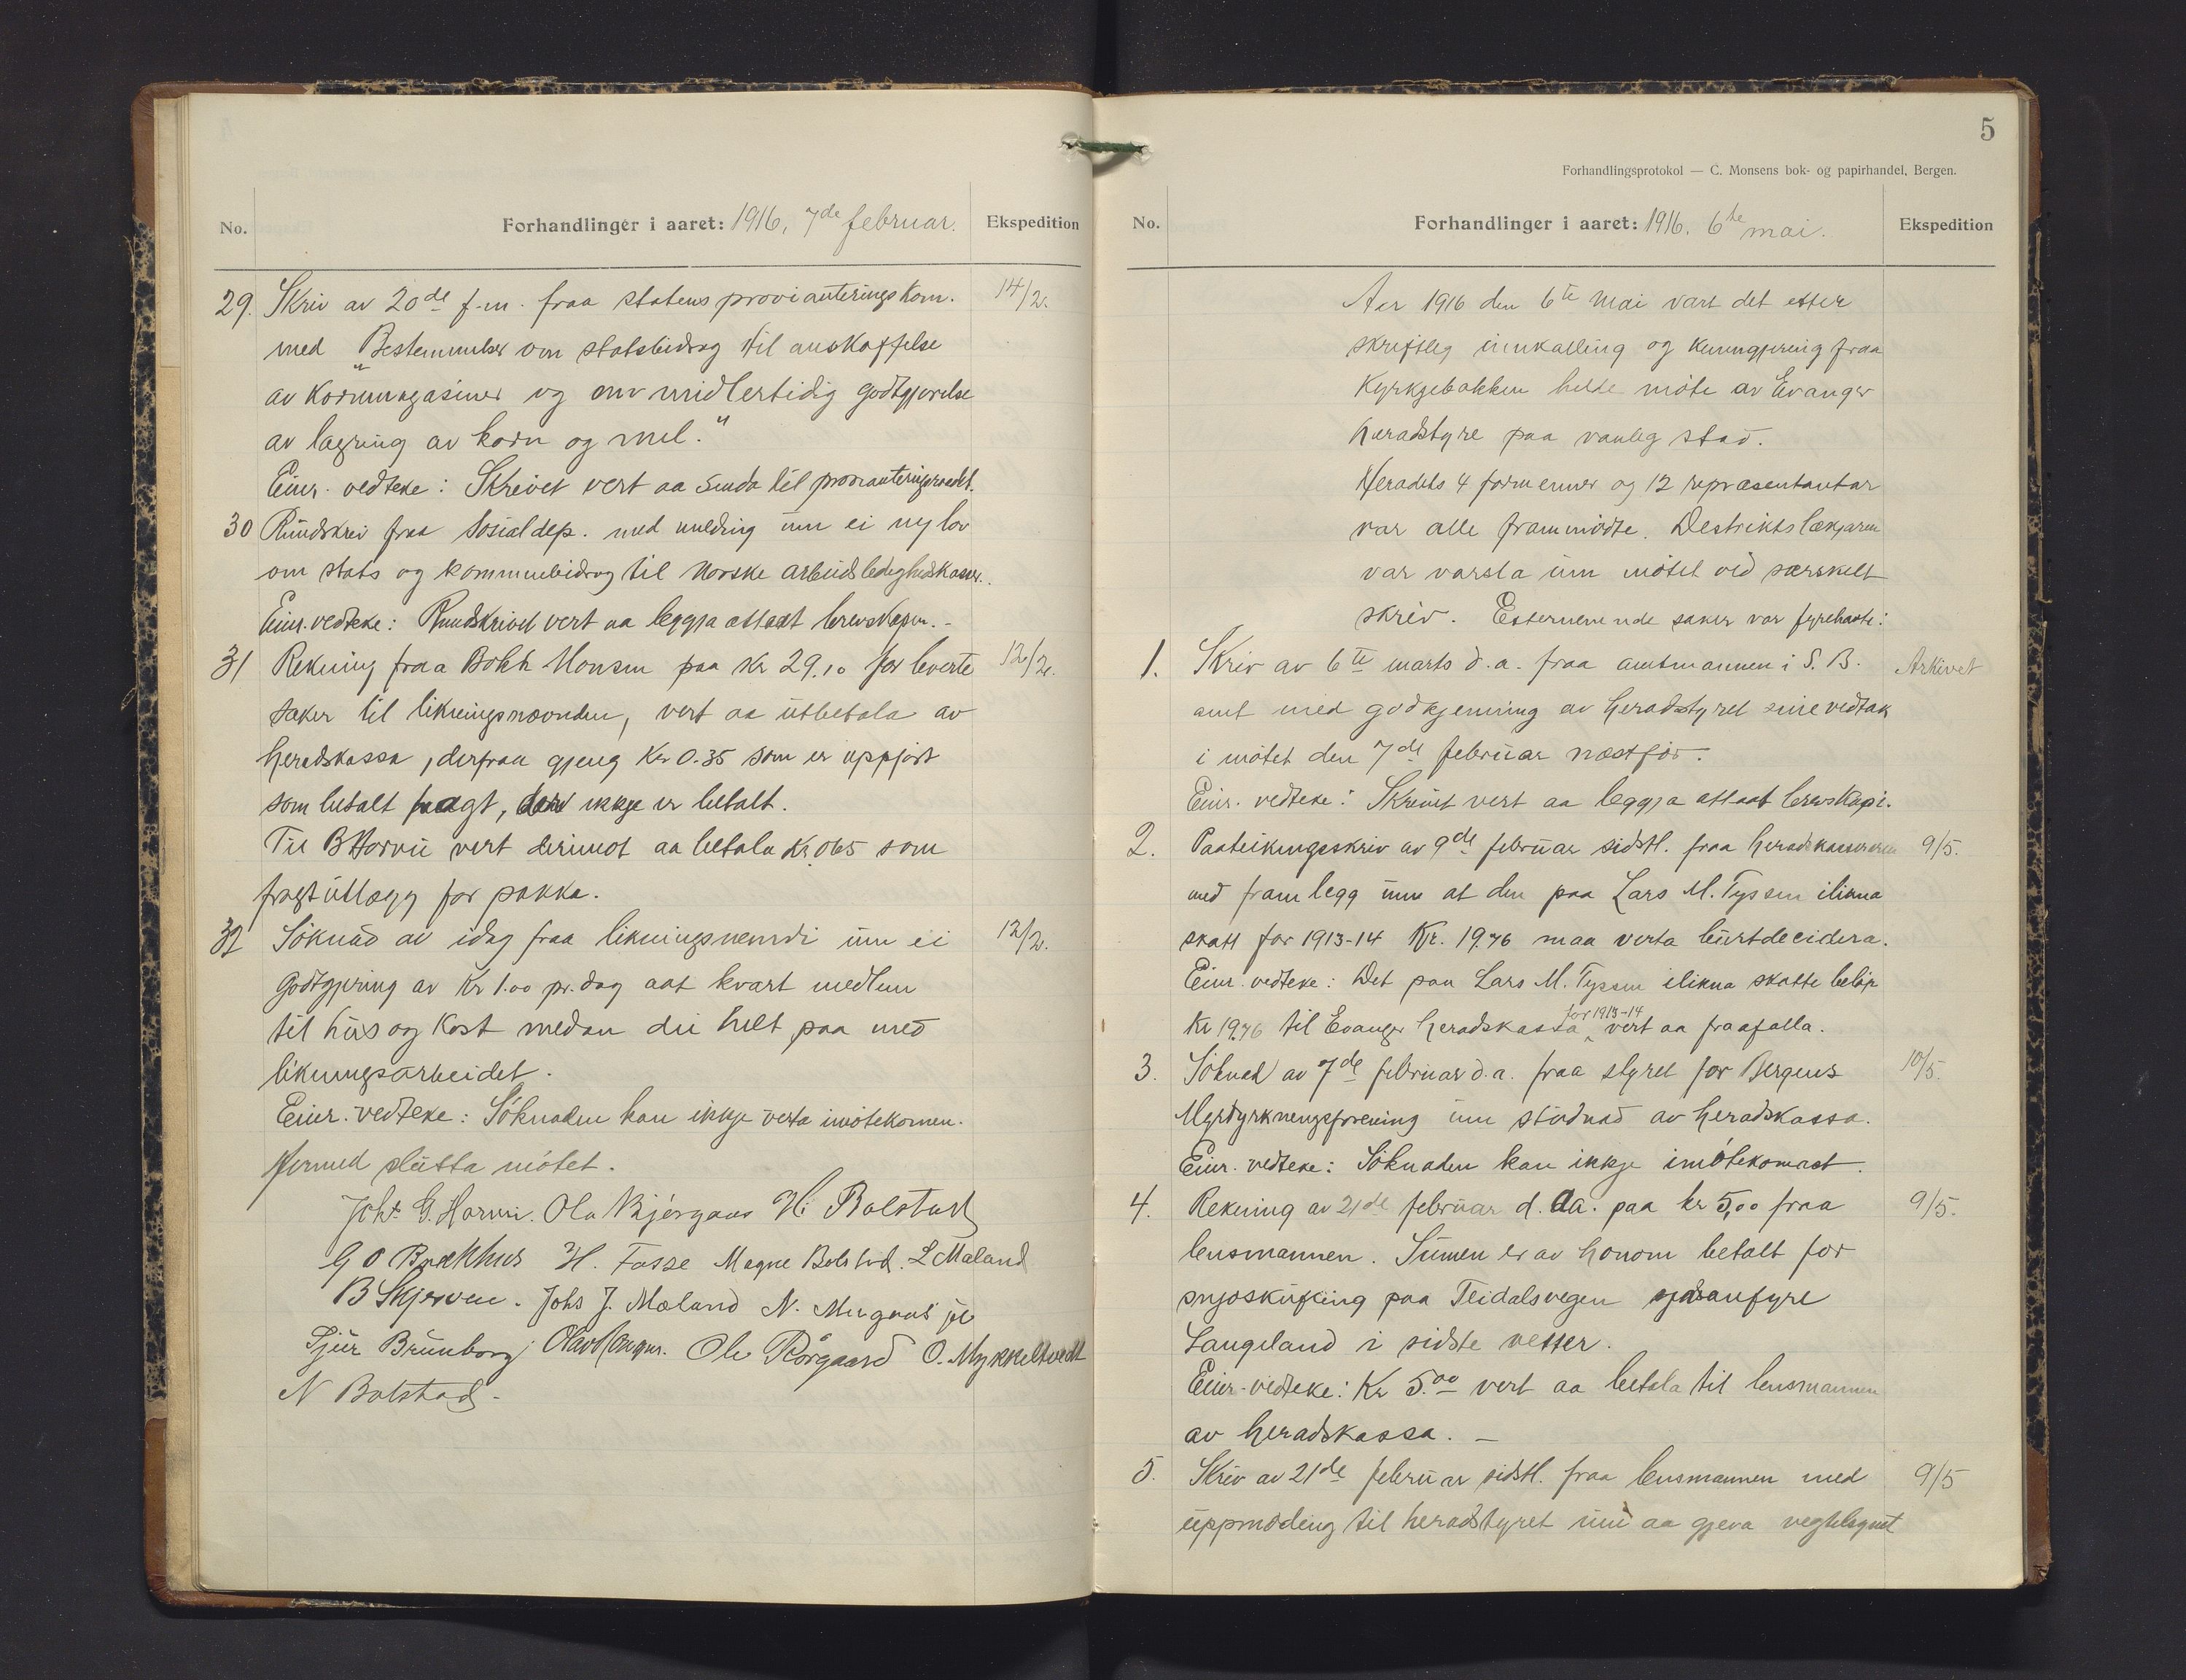 No. Forhandlinger i aaret: 1916, 7de februar. Ekspedition
29. Skriv av 20de f.m. fraa statens provianteringskom. 14/2.
med „Bestemmelser om statsbidrag til anskaffelse
av kornmagasiner og om midlertidig godtgjørelse
av lagring av korn og mel."
Einr. vedteke: Skrivet vert aa senda til provianteringsraadet.
30 Rundskriv fraa Sosialdep. med melding um ei ny lov
om stats og kommunebidrag til Norske arbeidsledighedskasser.
Einr. vedteke: Rundskrivet vert aa leggja attaat brevskapen. -
31 Rekning fraa Bokh Monsen paa kr 29.10 for leverte 12/2.
saker til likningsnævnden, vert aa utbetala av
heradskassa, derfraa gjeng Kr 0.35 som er uppført
som betalt fragt, ikkje er betalt.
Til B Horvei vert derimot aa betala Kr. 065 som
fragtutlægg for pakka.
32 Søknad av idag fraa likningsnemdi um ei 12/2.
Godtgjering av Kr 1.00 pr. dag aat kvart medlem
til hus og kost medan dei helt paa med
likningsarbeidet.
Einr. vedteke: Søknaden kan ikkje verta imøtekomen.
Hermed slutta møtet.
Johs. G. Horvei. Ola Bjørgaas H. Bolstad
G O Brækhus H. Fosse Magne Bolstad. L Mæland
B Skjerven. Johs J. Mæland N. Mugaas
Sjur Brunborg Ole Rørgaard O. Mykkeltvedt
N Bolstad -
5
Forhandlingsprotokol — C. Monsens bok- og papirhandel, Bergen.
No. Forhandlinger i aaret: 1916. 6te mai. Ekspedition
Aar 1916 den 6te Mai vart det etter
skriftleg innkalling og kunngjering fraa
Kyrkjebakken helde møte av Evanger
heradstyre paa vanleg stad.
Heradets 4 formenner og 12 repræsentantar
var alle frammødte. Destriktslækjaren
var varsla um møtet ved særskelt
skriv. Etternemnde saker var fyrehavte:
1. Skriv av 6te marts d.a. fraa amtmannen i S. B. Arkivet
amt med godkjenning av heradstyret sine vedtak
i møtet den 7de februar næstfør.
Einr. vedteke: Skrivet vert aa leggja attaat brevskapi.
2. Paateikningsskriv av 9de februar sidstl. fraa heradskassereren 9/5.
med framlegg um at den paa Lars M. Tyssen ilikna
skatt for 1913-14 Kr. 19.76 maa verta burtdecidera.
Einr. vedteke: Det paa Lars M. Tyssen ilikna skatte beløp
for 1913-14
Kr 19.76 til Evanger heradskassa vert aa fraafalla.
3. Søknad av 7de februar d.a. fraa styret for Bergens 10/5.
Myrdyrkningsforening um studnad av heradskassa.
Einr. vedteke: Søknaden kan ikkje imøtekomast.
4. Rekning av 21de februar d. Aa. paa kr 5,00 fraa 9/5.
lensmannen. Sumen er av honom betalt for
snjoskufling paa Teidalsvegen
Langeland i sidste vetter.
Einr. vedteke: Kr 5.00 vert aa betala til lensmannen
av heradskassa. -
5. Skriv av 21de februar sidstl. fraa lensmannen med 9/5
uppmoding til heradstyret um aa gjeva